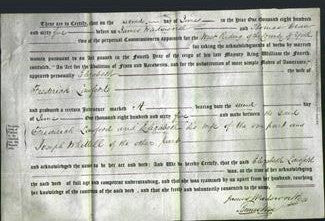 These are to Certify, that on the second day of June in the Year One thousand eight hundred
and sixty five before James Wadsworth and
two of the perpetual Commissioners appointed for the West Riding of the County of York
for taking the acknowledgments of deeds by married
women, pursuant to an Act passed in the Fourth Year of the reign of his late Majesty King William the Fourth,
intituled, "An Act for the Abolition of Fines and Recoveries, and for the substitution of more simple modes of Assurance,"
appeared personally Elizabeth
Frederick
and produced a certain Indenture marked A bearing date the second day of
June One thousand eight hundred and sixty five and made between the said
Frederick and Elizabeth his wife of the one part and
Joseph of the other part
and acknowledged the same to be her act and deed: And We do hereby Certify, that the said Elizabeth
was, at the time of her acknowledging
the said deed of full age and competent understanding, and that she was examined by us apart from her husband, touching
her knowledge of the contents of the said deed, and that she freely and voluntarily consented to the same.
James Wadsworth